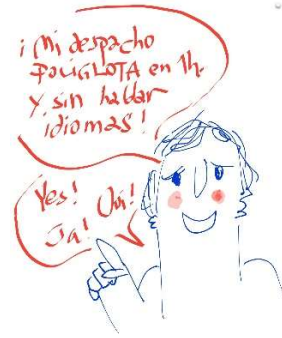 ¡Mi despacho
POLÍGLOTA en 1h.
Y sin hablar
idiomas!
Yes! Oui!
Ja!